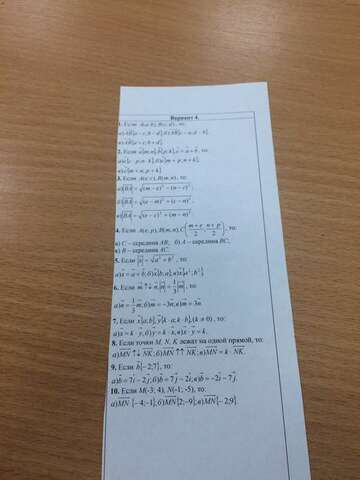 Вариант 4.
1. Если A(a; b), B(c; d), то:
а) AB{a − c; b − d}; б) AB{c − a; d − b};
в) AB{a + c; b + d}.
2. Если a{m; n}, b{p; k}, c = a + b, то:
3. Если A(e; c), B(m; n), то:
4. Если A(e; p), B(m; n), C((m + e)/2; (n + p)/2), то:
а) C – середина AB; б) A – середина BC;
в) B – середина AC.
5. Если |s| = √(a² + b²), то:
6. Если m ↑↓ n, |n| = 1/3 |m|, то:
а) n = 1/3 m; б) m = −3n; в) m = 3n
7. Если x{a; b}, y{k · a; k · b}, (k ≠ 0), то:
а) x = k · y; б) y = k · x; в) x · y = k.
8. Если точки M, N, K лежат на одной прямой, то:
а) MN ↑↓ NK; б) MN ↑↑ NK; в) MN = k · NK.
9. Если b{−2;7}, то:
а) b = 7i − 2j; б) b = 7j − 2i; в) b = −2i − 7j.
10. Если M(-3; 4), N(-1; -5), то:
а) MN{−4;−1}; б) MN{2;−9}; в) MN{−2;9}.